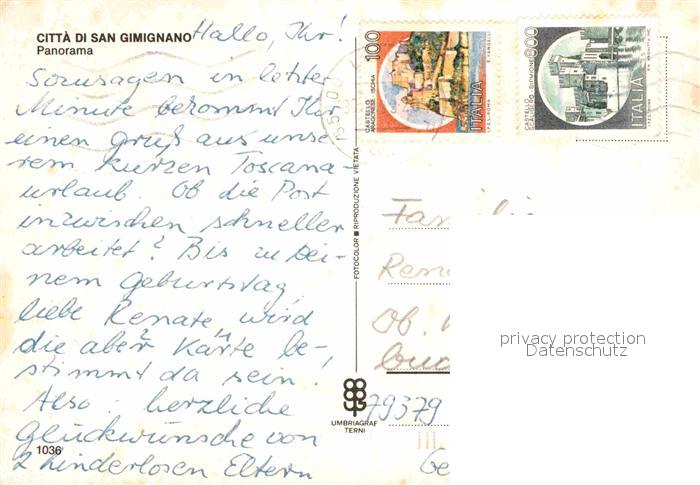 CITTÀ DI SAN GIMIGNANO
Panorama
Hallo, Ihr!
Sozusagen in letzter
Minute bekommt Ihr
einen Gruß aus unse-
rem kurzen Toscana-
urlaub. Ob die Post
inzwischen schneller
arbeitet? Bis zu Dei-
nem Geburtstag,
liebe Renate, wird
die aber Karte be-
stimmt da sein!
Also: herzliche
Glückwünsche von
2 kinderlosen Eltern
1036
FOTOCOLOR ■ RIPRODUZIONE VIETATA
UMBRIAGRAF
TERNI
100
CASTELLO
ARAGONESE · ISCHIA
ITALIA
800
CASTELLO
ITALIA
Fam
Ren
Ob.
79379
Ge
privacy protection
Datenschutz